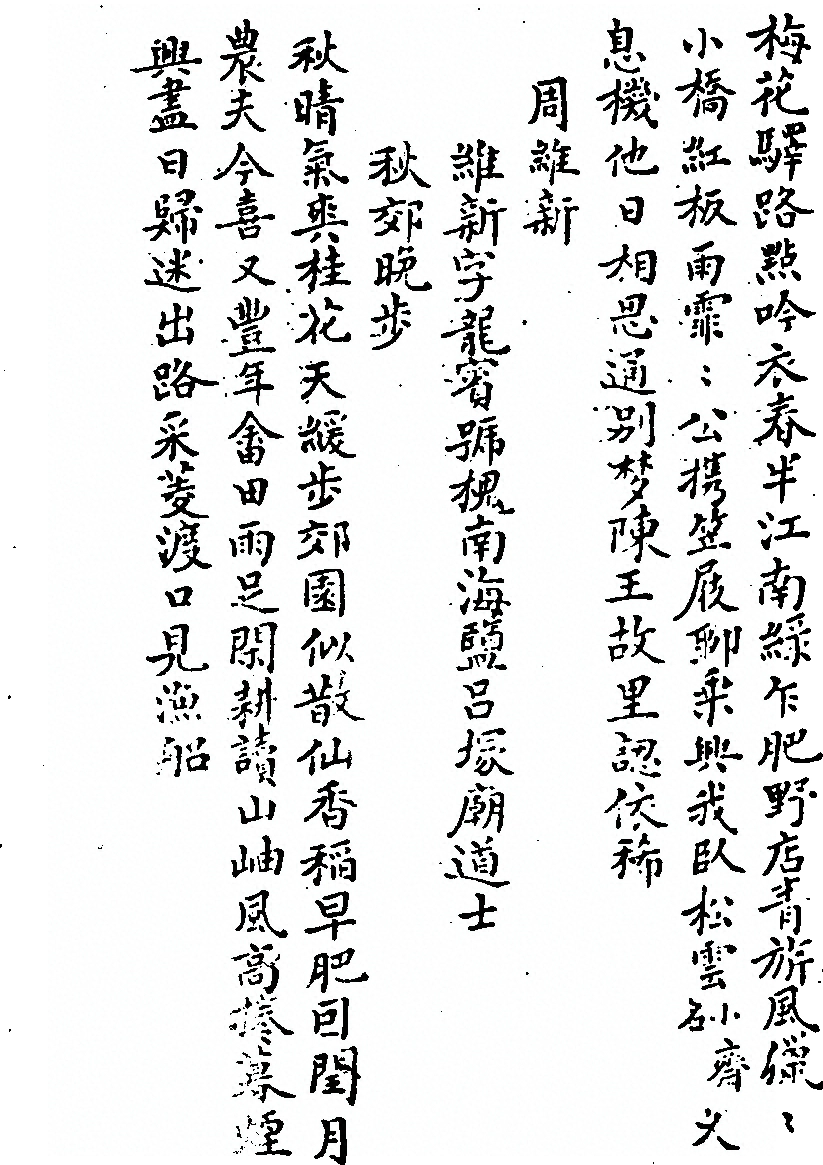 梅花驛路點吟衣春半江南綠乍肥野店青旂風儠〻
小橋紅板雨霏〻公攜笠屐聊乘興我臥松雲齊义
息機他日相思通别梦陳王故里認依稀
周維新
維新字龍賓號槐南海鹽吕塚廟道士
秋郊晚步
秋晴氣爽桂花天緩步郊園似散仙香稻早肥囙閏月
農夫今喜又豐年畬田雨足閑耕讀山岫風高捲暮煙
興盡日歸迷出路采菱渡口見漁船